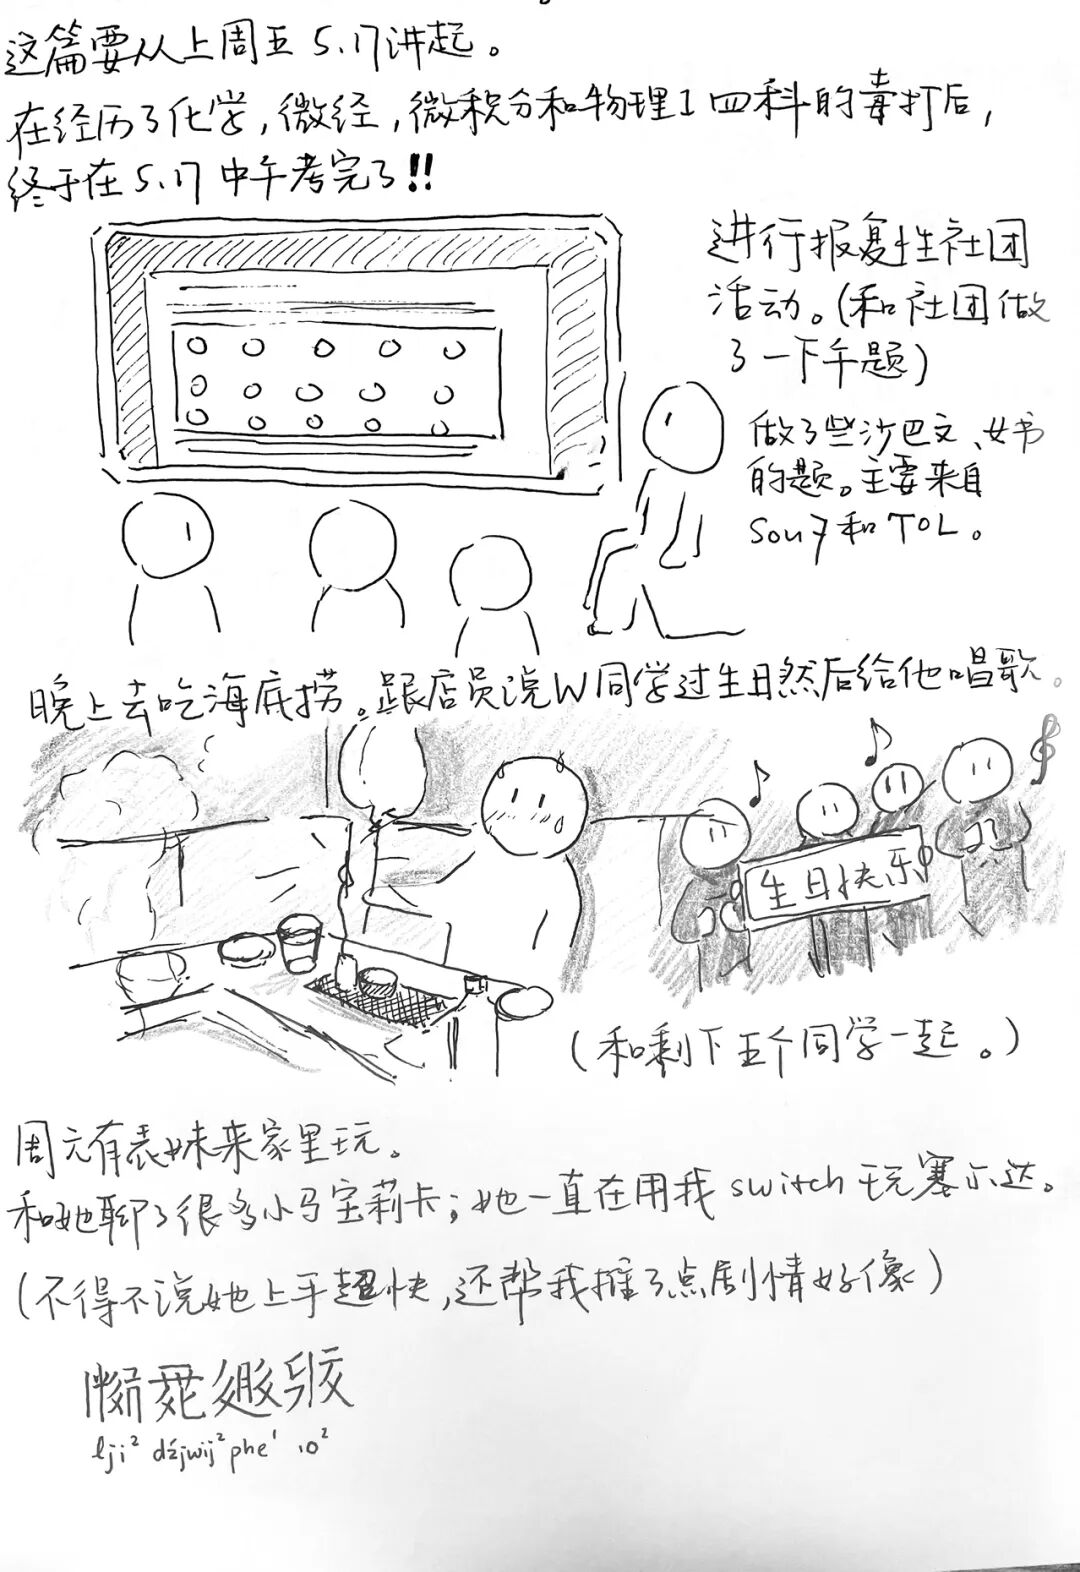 这篇要从上周五 5.17讲起。
在经历了化学,微经,微积分和物理1四科的毒打后,
终于在5.17中午考完了!!
进行报复性社团
活动。(和社团做
了一下午题)
做了些沙巴文、女书
的题。主要来自
和TOL。
晚上去吃海底捞。跟店员说W同学过生日然后给他唱歌。
生日快乐
(和剩下五个同学一起。)
周六有表妹来家里玩。
和她聊了很多小马宝莉卡;她一直在用我switch玩塞尔达。
(不得不说她上手超快,还帮我推了点剧情好像)